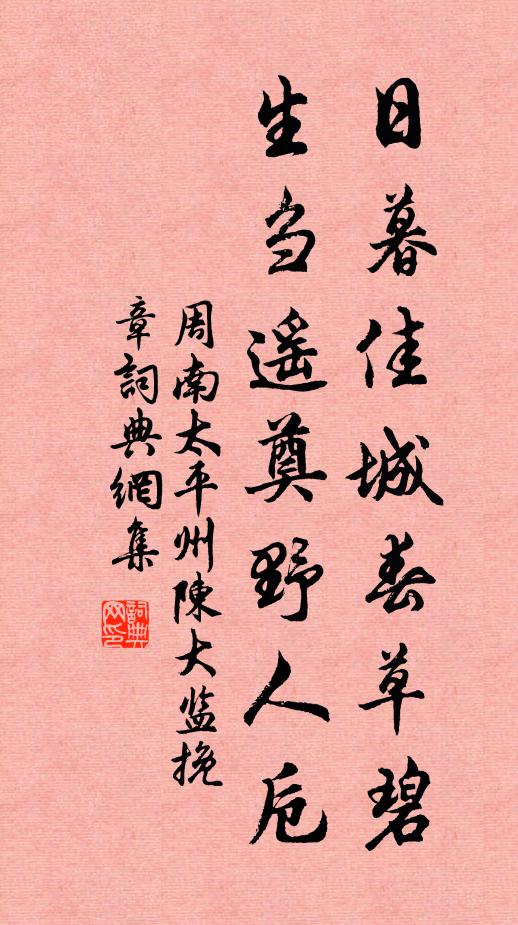 日暮佳城春草碧
生刍遥奠野人卮
周南太平州陳大监挽
章詞典網集
詞典
网印